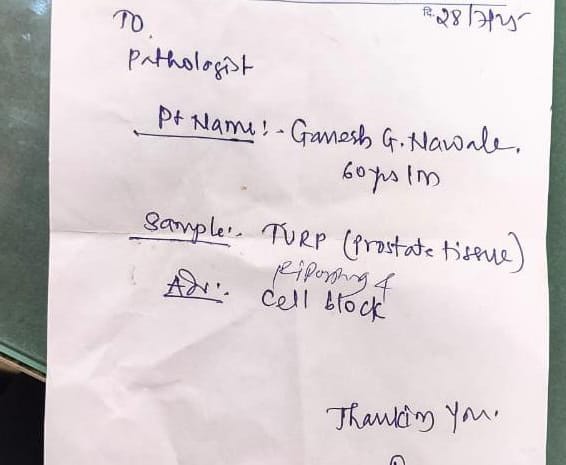 दि. 28/7/25
To.
Pathologist
Pt Name:- Ganesh G. Nawale.
60 yrs/m
Sample:- TURP (Prostate tissue)
Adv:-
cell block
Thanking you.